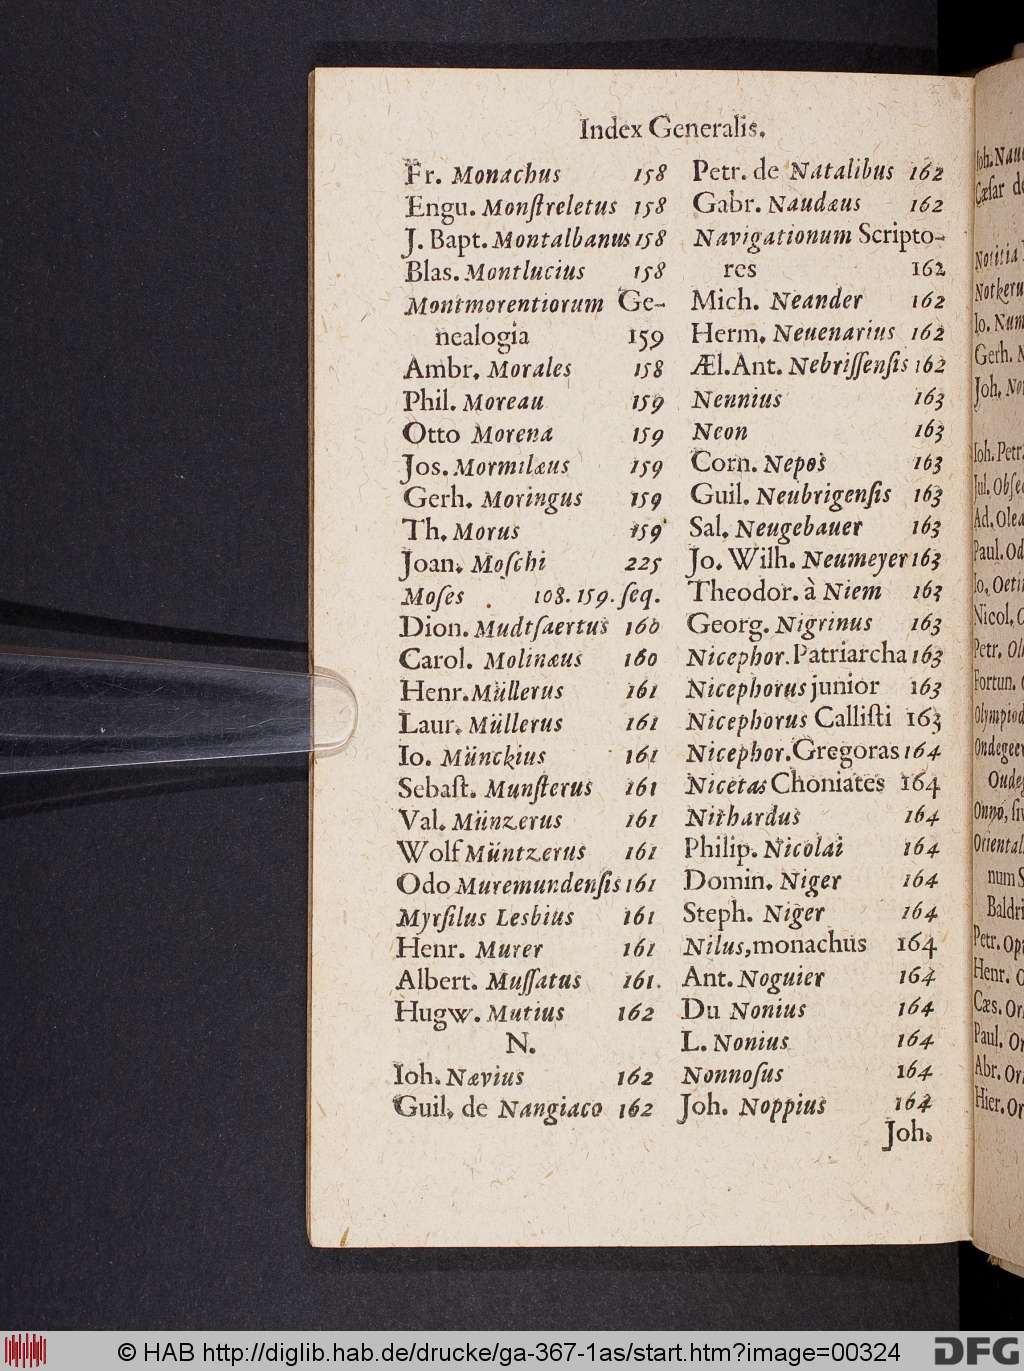 Index Generalis.
Fr. Monachus 158
Engu. Monſtreletus 158
J. Bapt. Montalbanus 158
Blas. Montlucius 158
Montmorentiorum Ge-
nealogia 159
Ambr. Morales 158
Phil. Moreau 159
Otto Morena 159
Jos. Mormilæus 159
Gerh. Moringus 159
Th. Morus 159
Joan. Moſchi 225
Moſes . 108. 159. ſeq.
Dion. Mudtſaertus 160
Carol. Molinæus 160
Henr. Müllerus 161
Laur. Müllerus 161
Io. Münckius 161
Sebaſt. Munſterus 161
Val. Münzerus 161
Wolf Müntzerus 161
Odo Muremundenſis 161
Myrſilus Lesbius 161
Henr. Murer 161
Albert. Muſſatus 161.
Hugw. Mutius 162
N.
Ioh. Nævius 162
Guil. de Nangiaco 162
Petr. de Natalibus 162
Gabr. Naudæus 162
Navigationum Scripto-
res 162
Mich. Neander 162
Herm. Neuenarius 162
Æl. Ant. Nebriſſenſis 162
Nennius 163
Neon 163
Corn. Nepos 163
Guil. Neubrigenſis 163
Sal. Neugebauer 163
Jo. Wilh. Neumeyer 163
Theodor. à Niem 163
Georg. Nigrinus 163
Nicephor. Patriarcha 163
Nicephorus junior 163
Nicephorus Calliſti 163
Nicephor. Gregoras 164
Nicetas Choniates 164
Nithardus 164
Philip. Nicolai 164
Domin. Niger 164
Steph. Niger 164
Nilus, monachus 164
Ant. Noguier 164
Du Nonius 164
L. Nonius 164
Nonnoſus 164
Joh. Noppius 164
Joh.
Cæſar
Notitia
Gerh.
Joh.
Ioh. Petr.
Jul.
Ad.
Paul.
Io.
Nicol.
Petr.
Fortun.
num
Petr.
Henr.
Cæs.
Paul.
Abr.
Hier.
© HAB http://diglib.hab.de/drucke/ga-367-1as/start.htm?image=00324
DFG